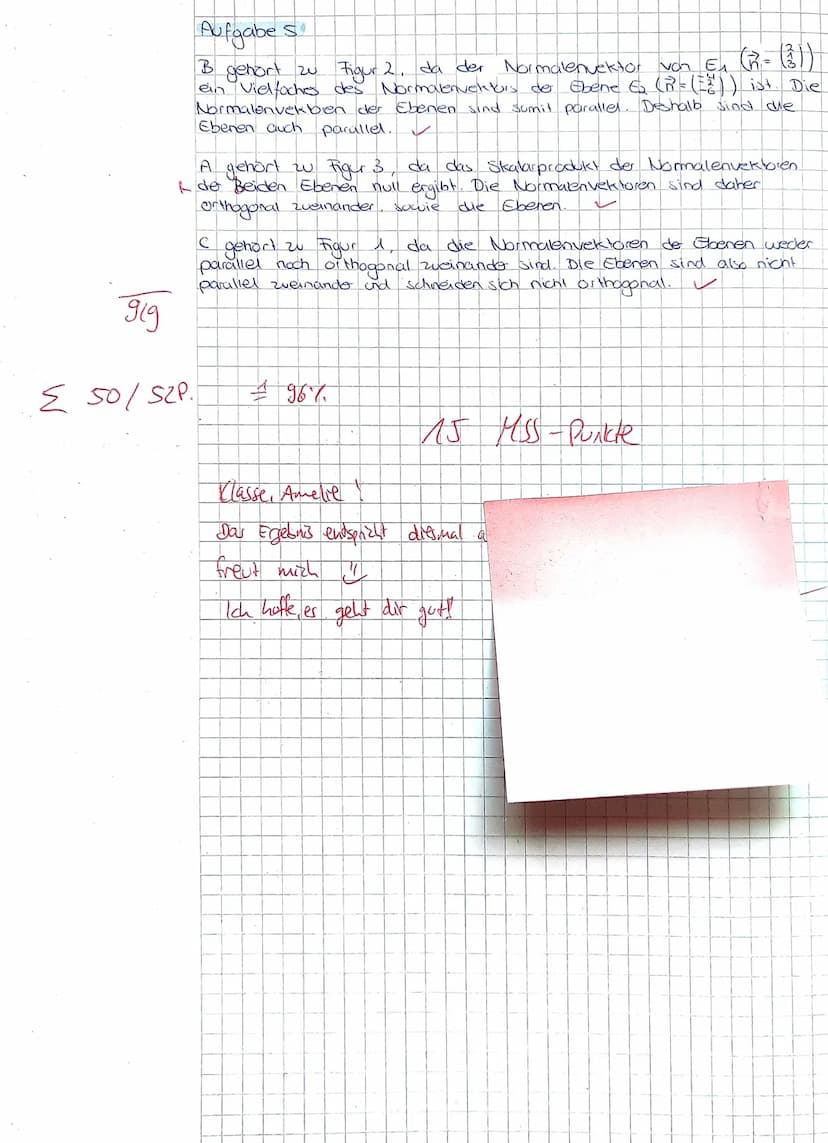 Aufgabe 5
B gehört zu Figur 2, da der Normalenvektor von E₁ (n⃗ = (2 1 3))
ein Vielfaches des Normalenvektors der Ebene E₂ ist. Die
Normalenvektoren der Ebenen sind somit parallel. Deshalb sind die
Ebenen auch parallel. ✓
A gehört zu Figur 3, da das Skalarprodukt der Normalenvektoren
r der Beiden Ebenen null ergibt. Die Normalenvektoren sind daher
orthogonal zueinander, sowie die Ebenen. ✓
C gehört zu Figur 1, da die Normalenvektoren der Ebenen weder
parallel noch orthogonal zueinander sind. Die Ebenen sind also nicht
parallel zueinander und schneiden sich nicht orthogonal. ✓
9/9
Σ 50/52P. ≙ 96%
15 MSS-Punkte
Klasse, Amelie!
Das Ergebnis entspricht diesmal
freut mich
Ich hoffe, es geht dir gut!